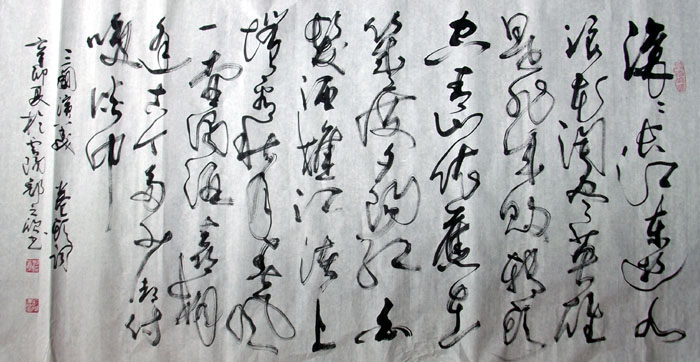 滚滚长江东逝水
浪花淘尽英雄
是非成败转头
空青山依旧在
几度夕阳红白
发渔樵江渚上
惯看秋月春风
一壶浊酒喜相
逢古今多少都付
笑谈中
三國演義 卷头词
辛卯夏於